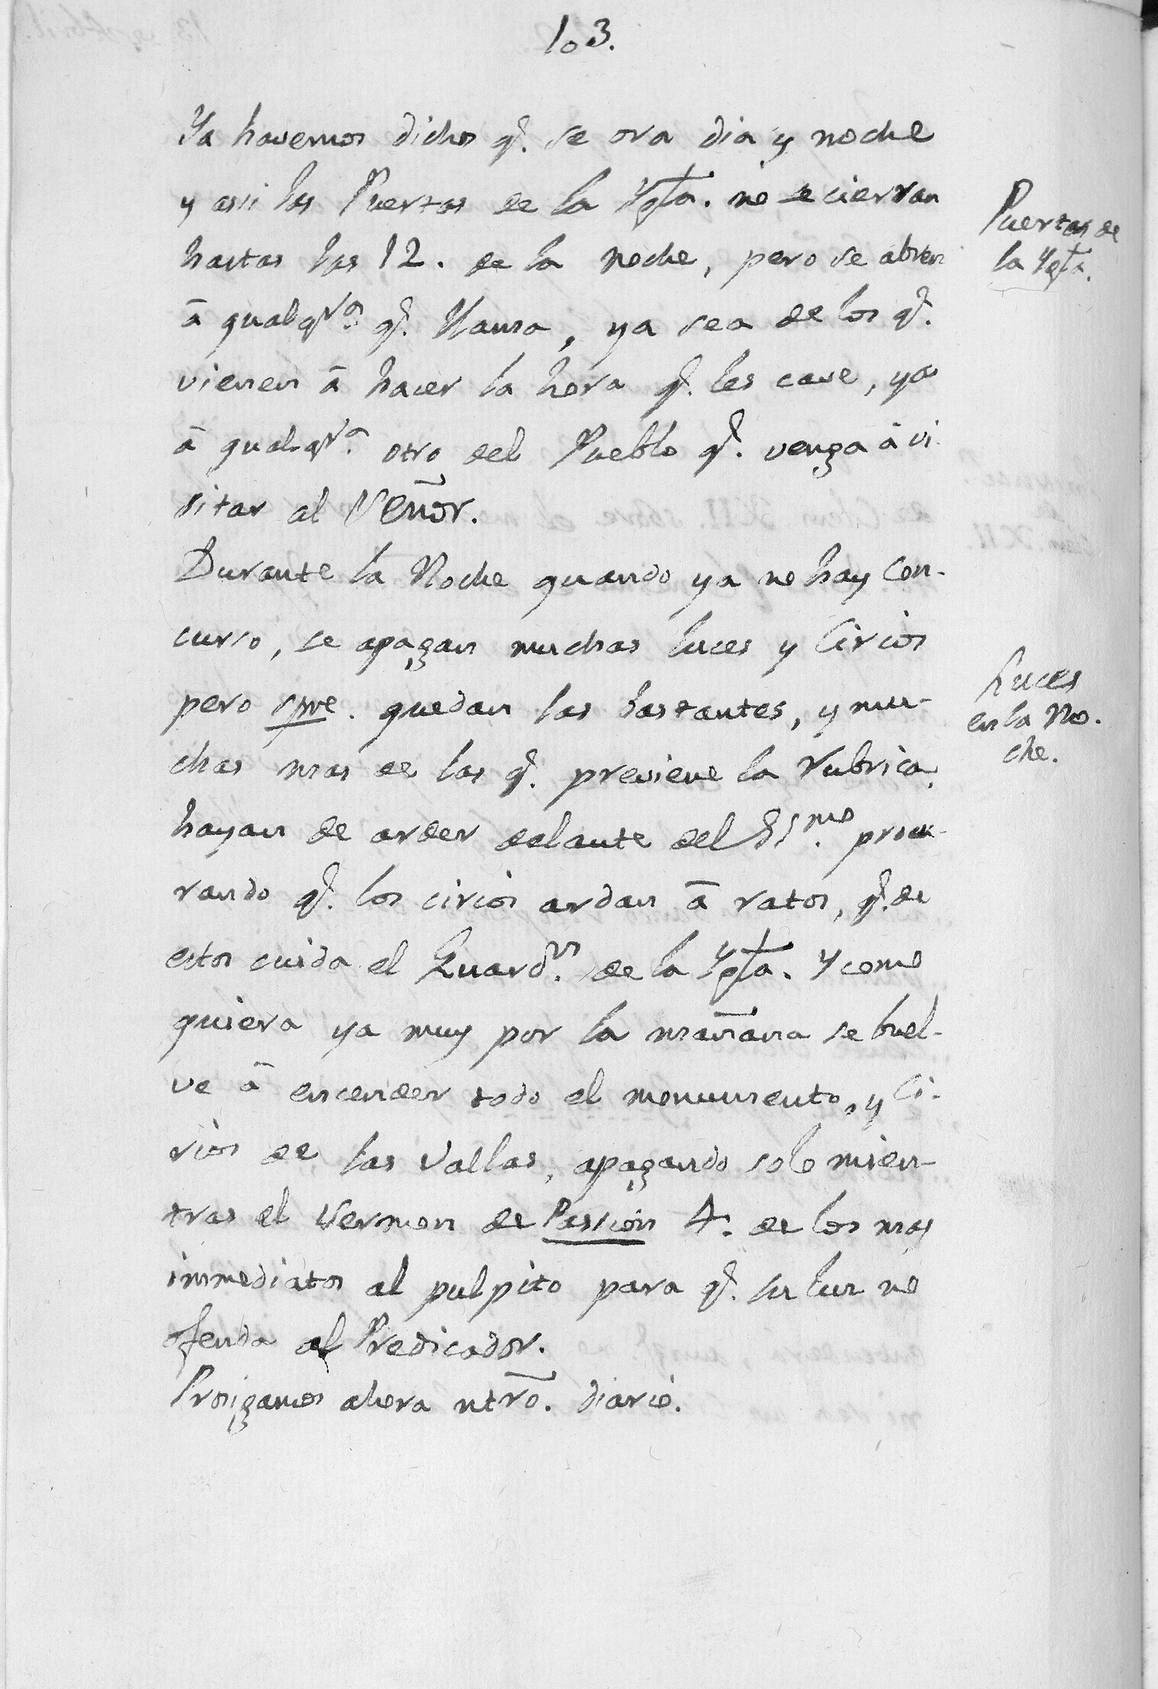 103.
Ya havemos dichos q.ͤ se ora dia y noche
y assi las Puertas de la Ygla. no se cierran
hastas las 12. de la noche, pero se abren
â qualqr.ᵃ q.ͤ llama, ya sea de los q.ͤ
vienen â hacer la hora q.ͤ les cave, ya
â qualqr.ᵃ otro del Pueblo q.ͤ venga â vi-
sitar al Señor.
Durante la Noche quando ya no hay Con-
curso, se apagan muchas luces y Cirios
pero spre. quedan las bastantes, y mu-
chas mas de las q.ͤ previene la rubrica,
hayan de arder delante del SS.ᵐᵒ procu-
rando q.ͤ los cirios ardan â ratos, q.ͤ de
estos cuida el Guard.ⁿ de la Ygla. Y como
quiera ya muy por la mañana se buel-
ve â encender todo el monumento, y Ci-
rios de las Vallas, apagando solo mien-
tras el Sermon de Passion 4. de los mas
immediatos al pulpito para q.ͤ su luz no
ofenda al Predicador.
Prosigamos ahora ntro. diario.
Puertas de
la Ygla.
Luces
en la No-
che.